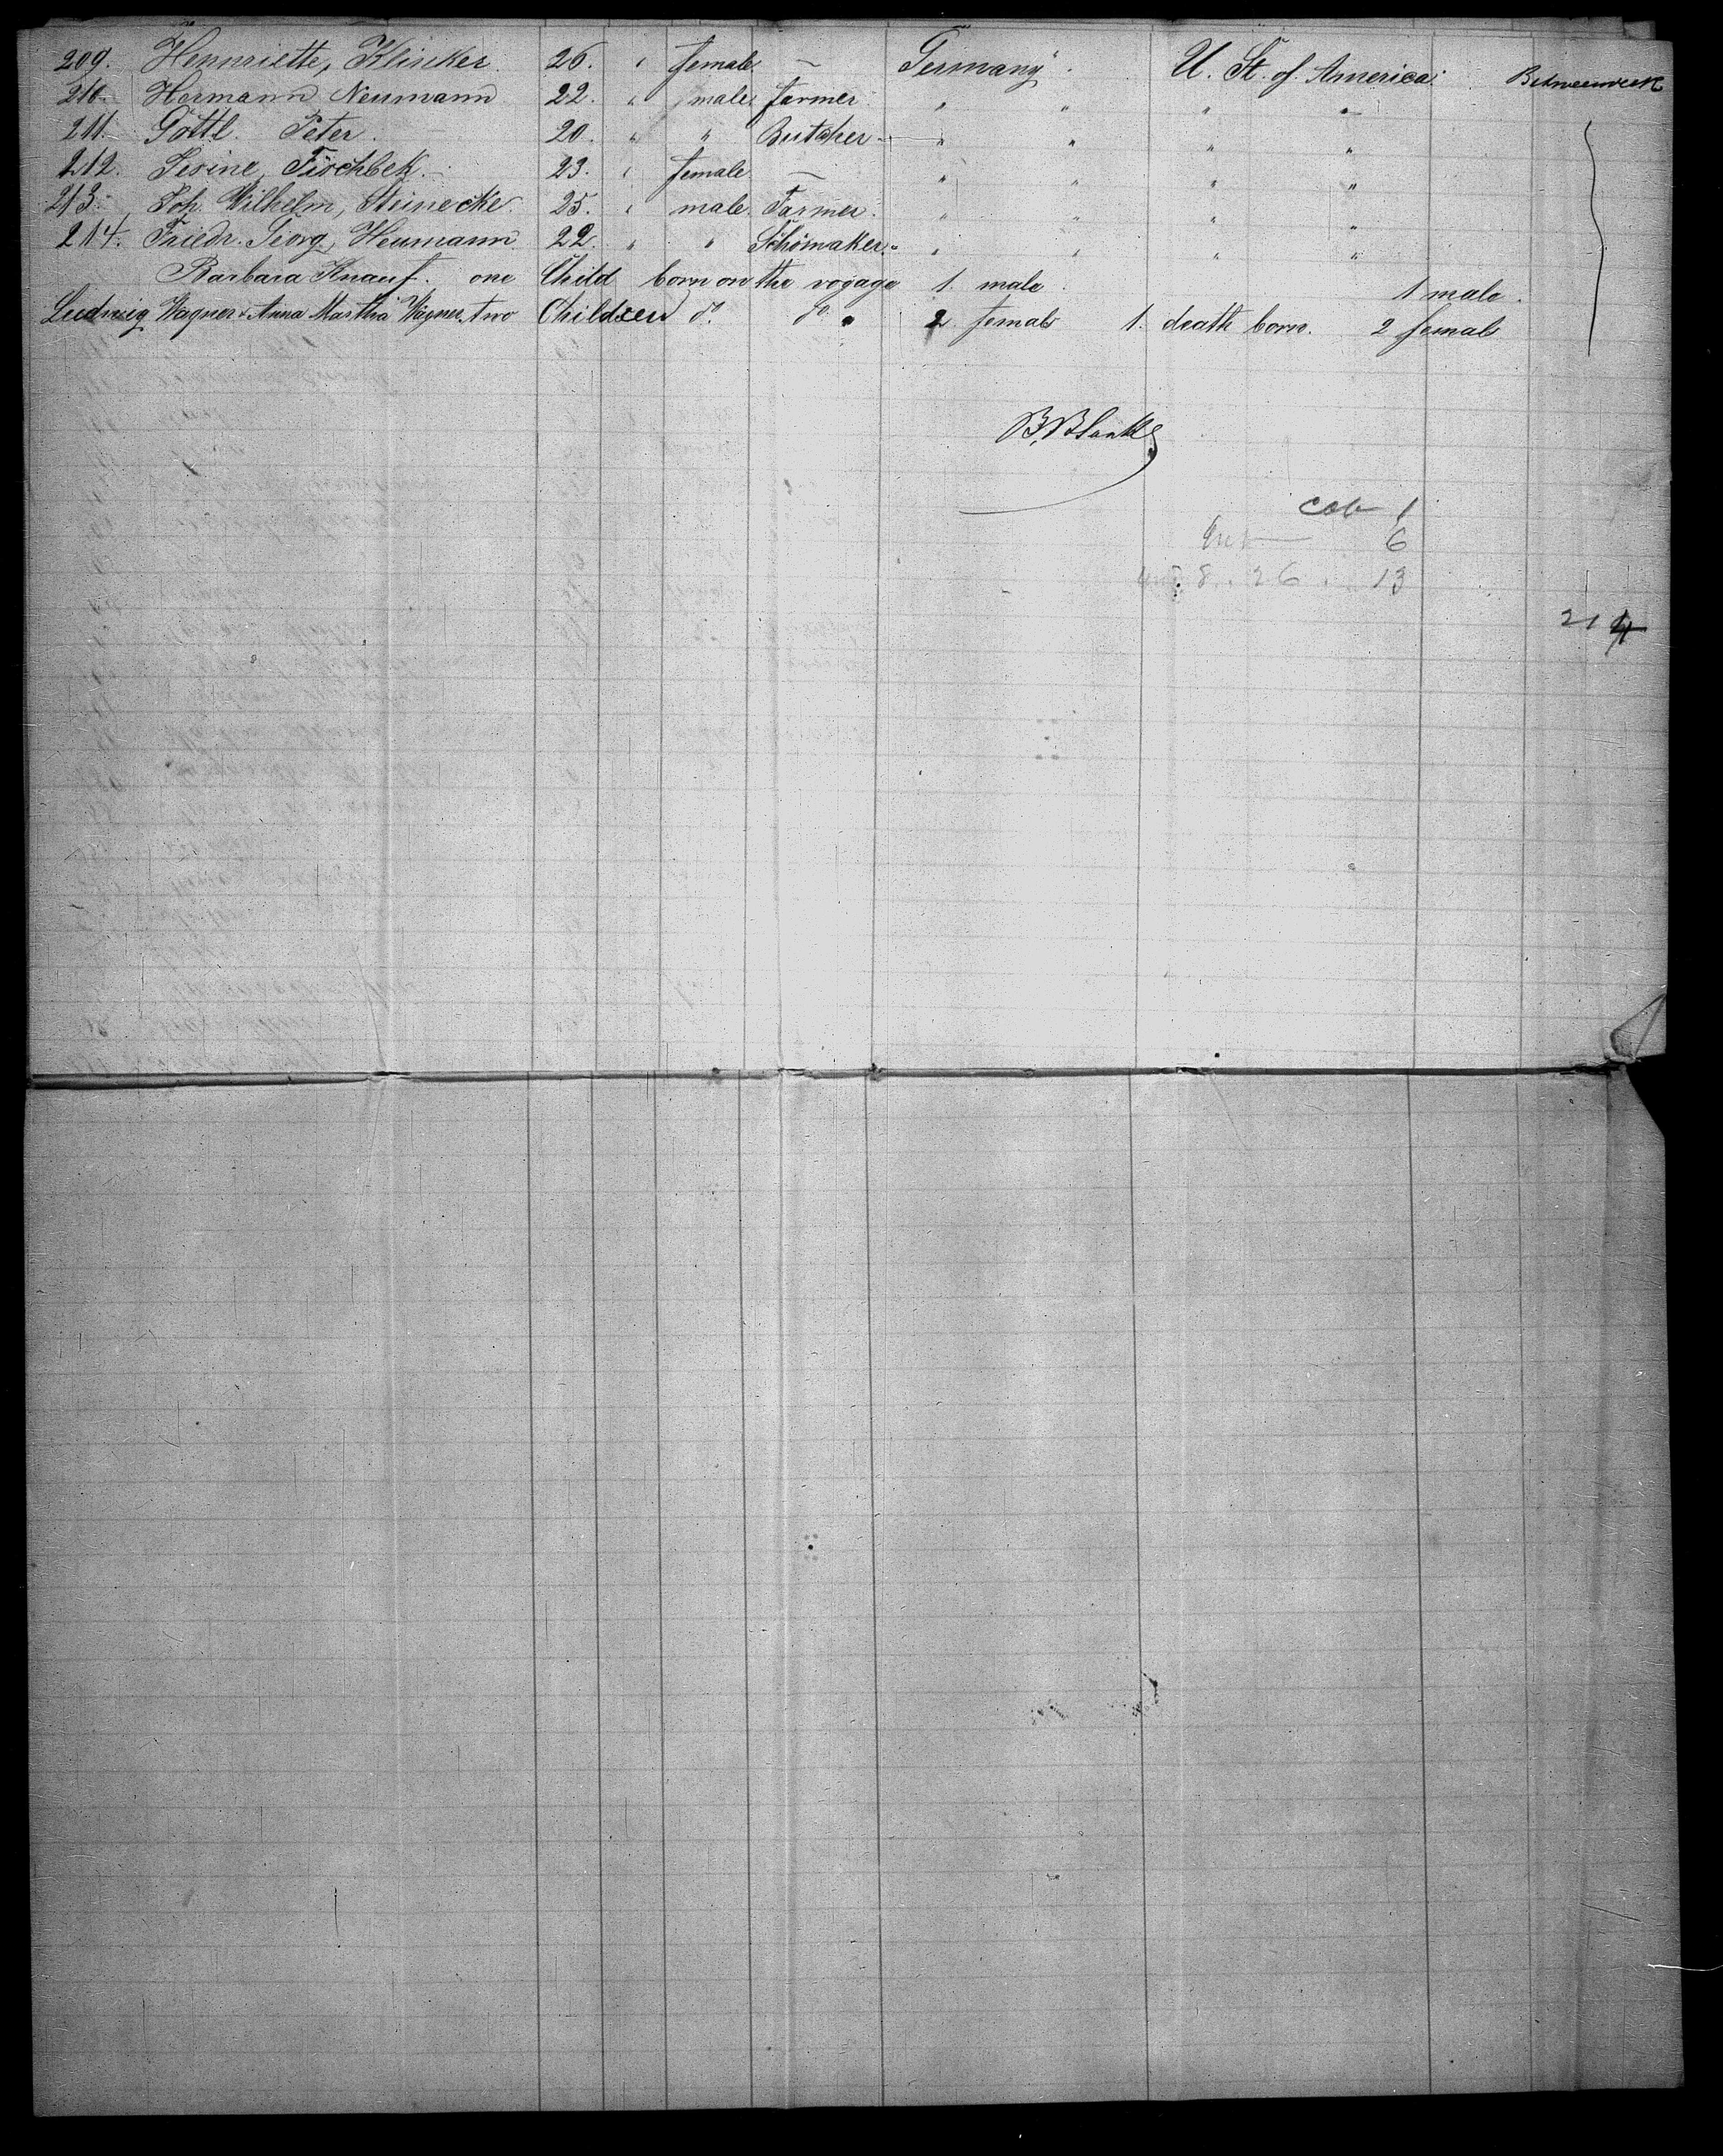 209. Hennriette, Klinker. 26. " female — Germany. U. St. of America. Betweendeck
210. Hermann Neumann 22. " male farmer " " " "
211. Gottl. Peter. 20. " " Butcher " " " "
212. Gesine, Fischbek. 23. " female — " " " "
213. Joh. Wilhelm, Steinecke. 25. " male. Farmer. " " " "
214. Friedr. Georg, Heumann 22. " " Schomaker. " " " "
Barbara Knauf. one Child born on the vogage 1. male. 1 male.
Ludwig Wagner & Anna Martha Wagner. two Children do. do. 2 femals 1. death born. 2 femals
cab 1
6
8. 26. 13
214